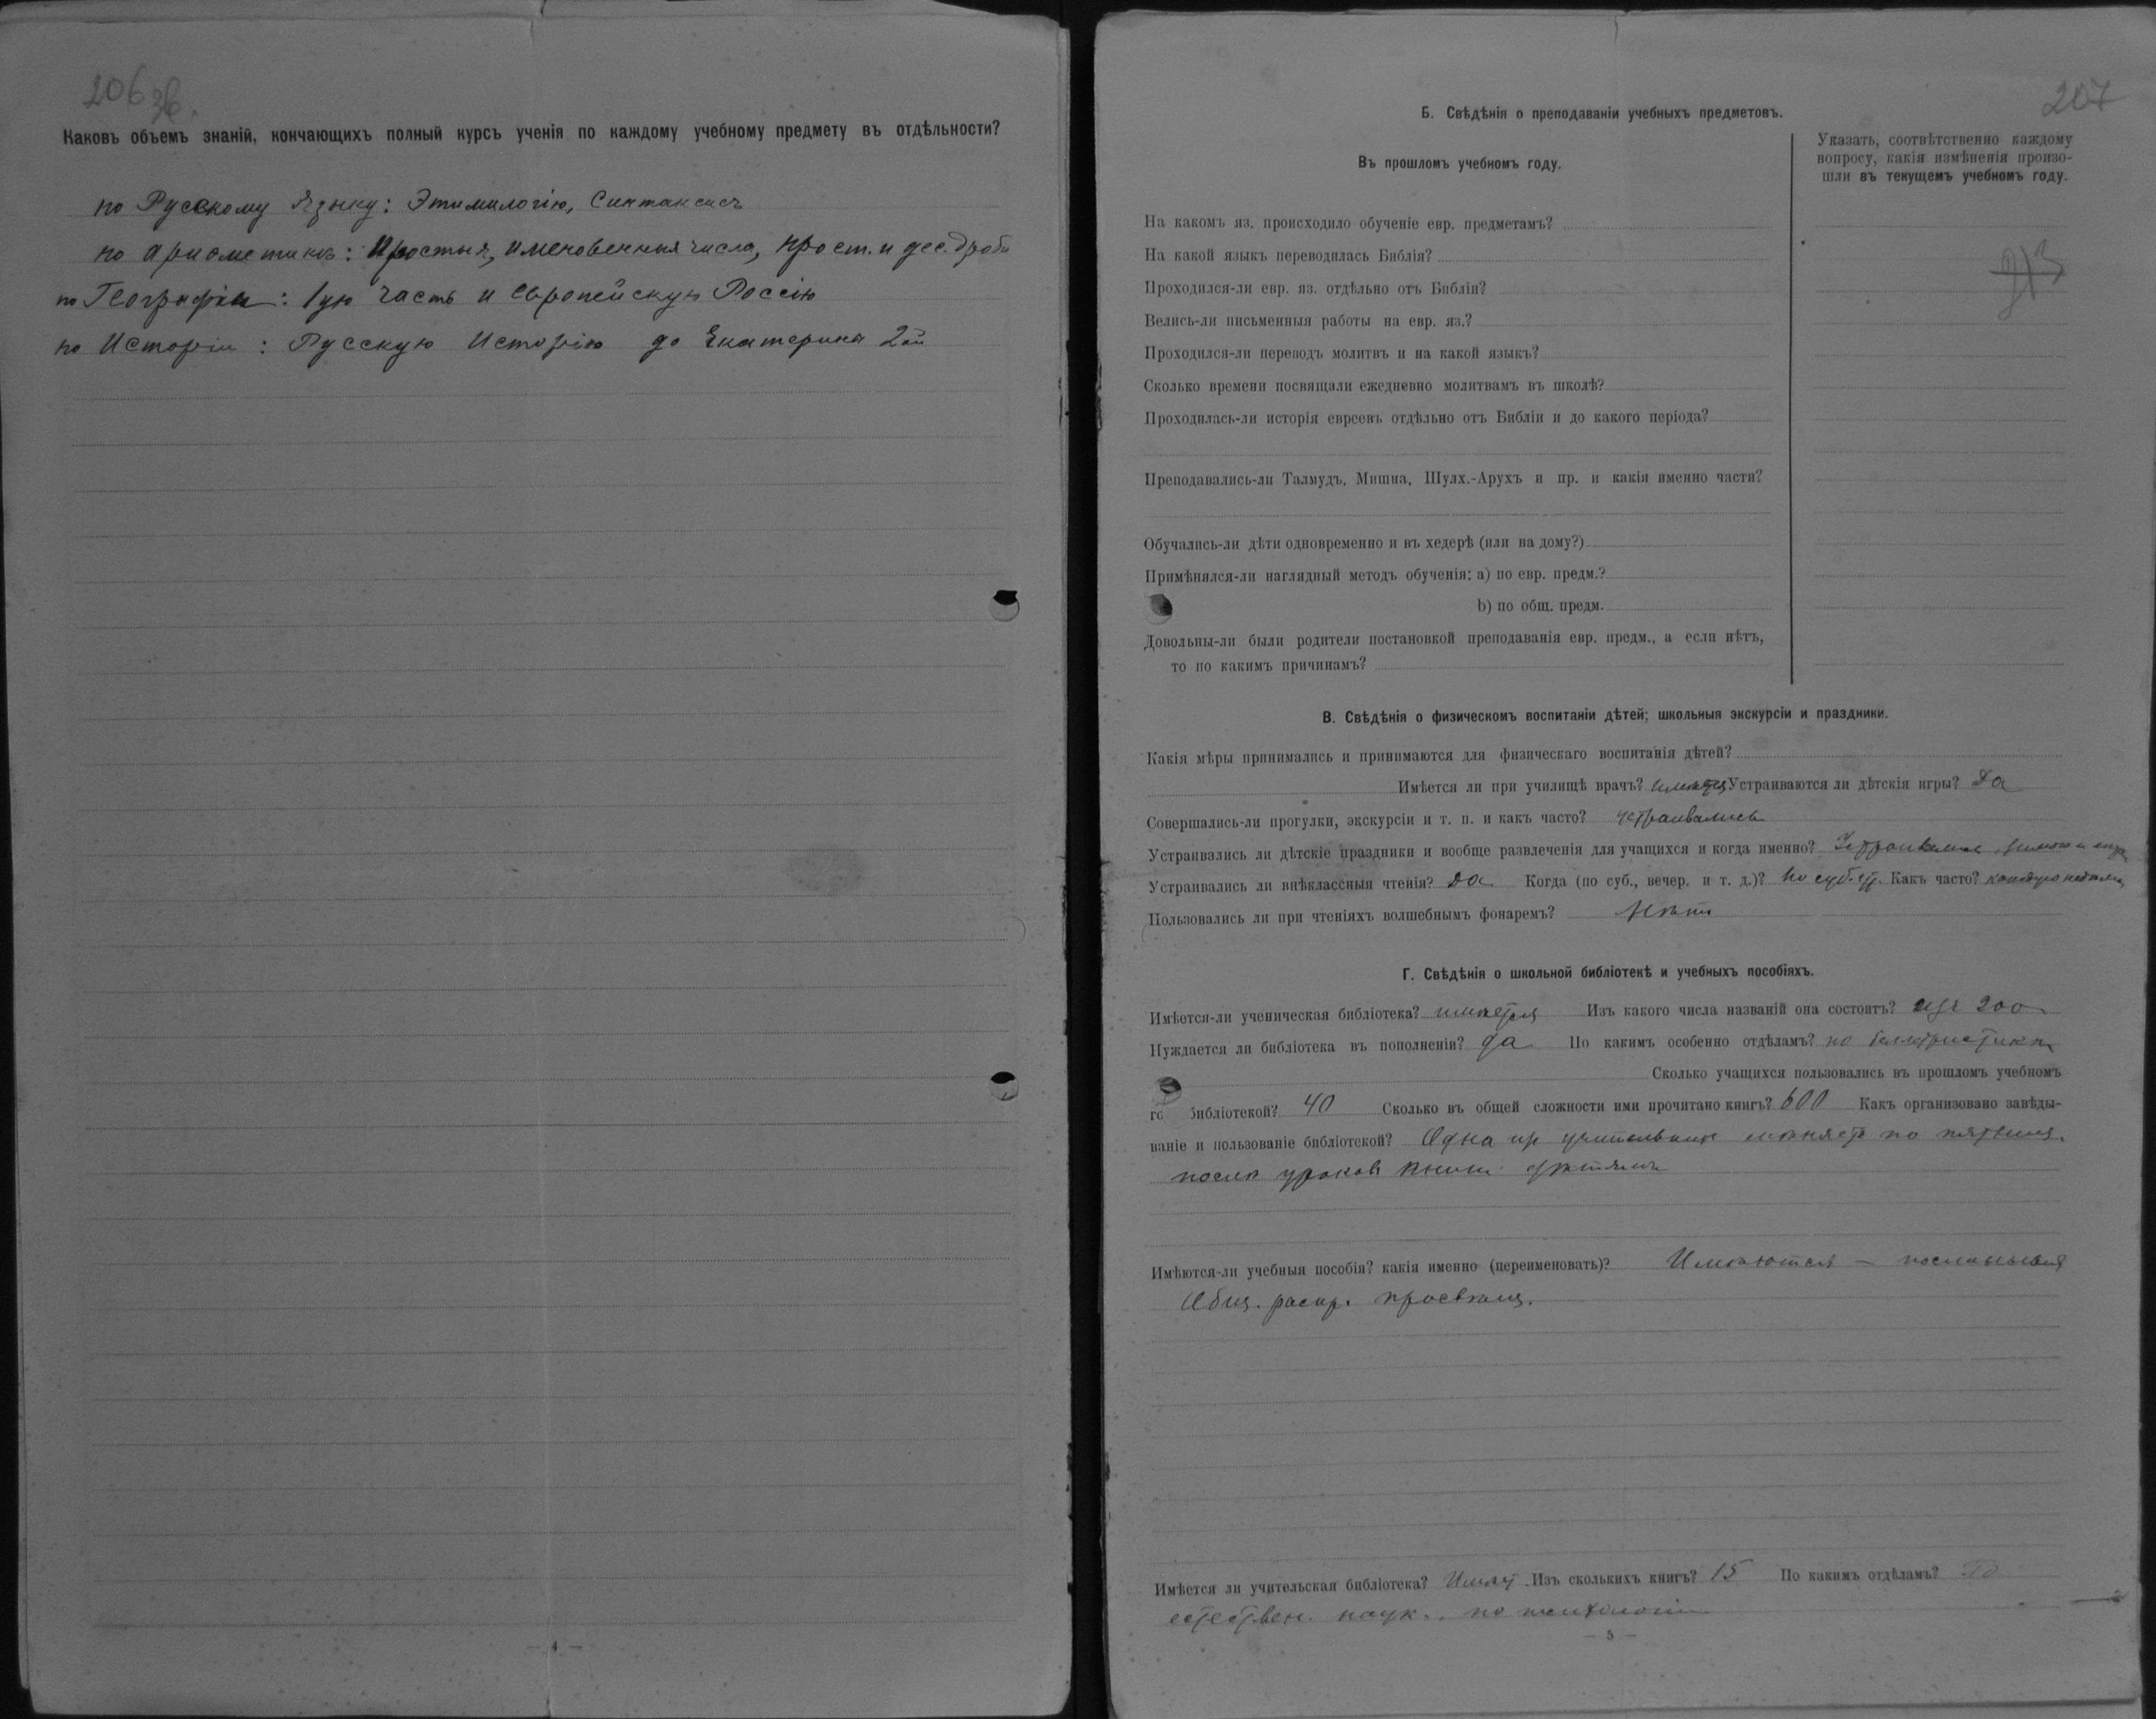 206 об.
Каковъ объемъ знаній, кончающихъ полный курсъ ученія по каждому учебному предмету въ отдѣльности?
по Русскому Языку: Этимилогію, Синтаксисъ
по Ариѳметикѣ: Простыя, именованныя числа, прост. и дес. дроби
по Географіи: 1ую часть и Европейскую Россію
по Исторіи: Русскую Исторію до Екатерины 2ой
— 4 —
207
Б. Свѣдѣнія о преподаваніи учебныхъ предметовъ.
Въ прошломъ учебномъ году.
Указать, соотвѣтственно каждому
вопросу, какія измѣненія произо-
шли въ текущемъ учебномъ году.
На какомъ яз. происходило обученіе евр. предметамъ?
На какой языкъ переводилась Библія?
Проходился-ли евр. яз. отдѣльно отъ Библіи?
Велись-ли письменныя работы на евр. яз.?
Проходился-ли переводъ молитвъ и на какой языкъ?
Сколько времени посвящали ежедневно молитвамъ въ школѣ?
Проходилась-ли исторія евреевъ отдѣльно отъ Библіи и до какого періода?
Преподавались-ли Талмудъ, Мишна, Шулх.-Арухъ и пр. и какія именно части?
Обучались-ли дѣти одновременно и въ хедерѣ (или на дому?)
Примѣнялся-ли наглядный методъ обученія: а) по евр. предм.?
b) по общ. предм.
Довольны-ли были родители постановкой преподаванія евр. предм., а если нѣтъ,
то по какимъ причинамъ?
В. Свѣдѣнія о физическомъ воспитаніи дѣтей; школьныя экскурсіи и праздники.
Какія мѣры принимались и принимаются для физическаго воспитанія дѣтей?
Имѣется ли при училищѣ врачъ? имѣется Устраиваются ли дѣтскія игры? Да
Совершались-ли прогулки, экскурсіи и т. п. и какъ часто? устраивались
Устраивались ли дѣтскіе праздники и вообще развлеченія для учащихся и когда именно? Устраивались, зимою и
Устраивались ли внѣклассныя чтенія? Да Когда (по суб., вечер. и т. д.)? По суб. Какъ часто? каждую недѣлю
Пользовались ли при чтеніяхъ волшебнымъ фонаремъ? Нѣтъ
Г. Свѣдѣнія о школьной библіотекѣ и учебныхъ пособіяхъ.
Имѣется-ли ученическая библіотека? имѣется Изъ какого числа названій она состоитъ? изъ 200
Нуждается ли библіотека въ пополненіи? да По какимъ особенно отдѣламъ? по беллетристикѣ
Сколько учащихся пользовались въ прошломъ учебномъ
го библіотекой? 40 Сколько въ общей сложности ими прочитано книгъ? 600 Какъ организовано завѣды-
ваніе и пользованіе библіотекой? Одна изъ учительницъ мѣняетъ по пятниц.
послѣ уроковъ книги дѣтямъ
Имѣются-ли учебныя пособія? какія именно (переименовать)? Имѣются —
Общ. распр. просвѣщ.
Имѣется ли учительская библіотека? Имѣет Изъ сколькихъ книгъ? 15 По какимъ отдѣламъ? По
естествен. наук., по психологіи
— 5 —